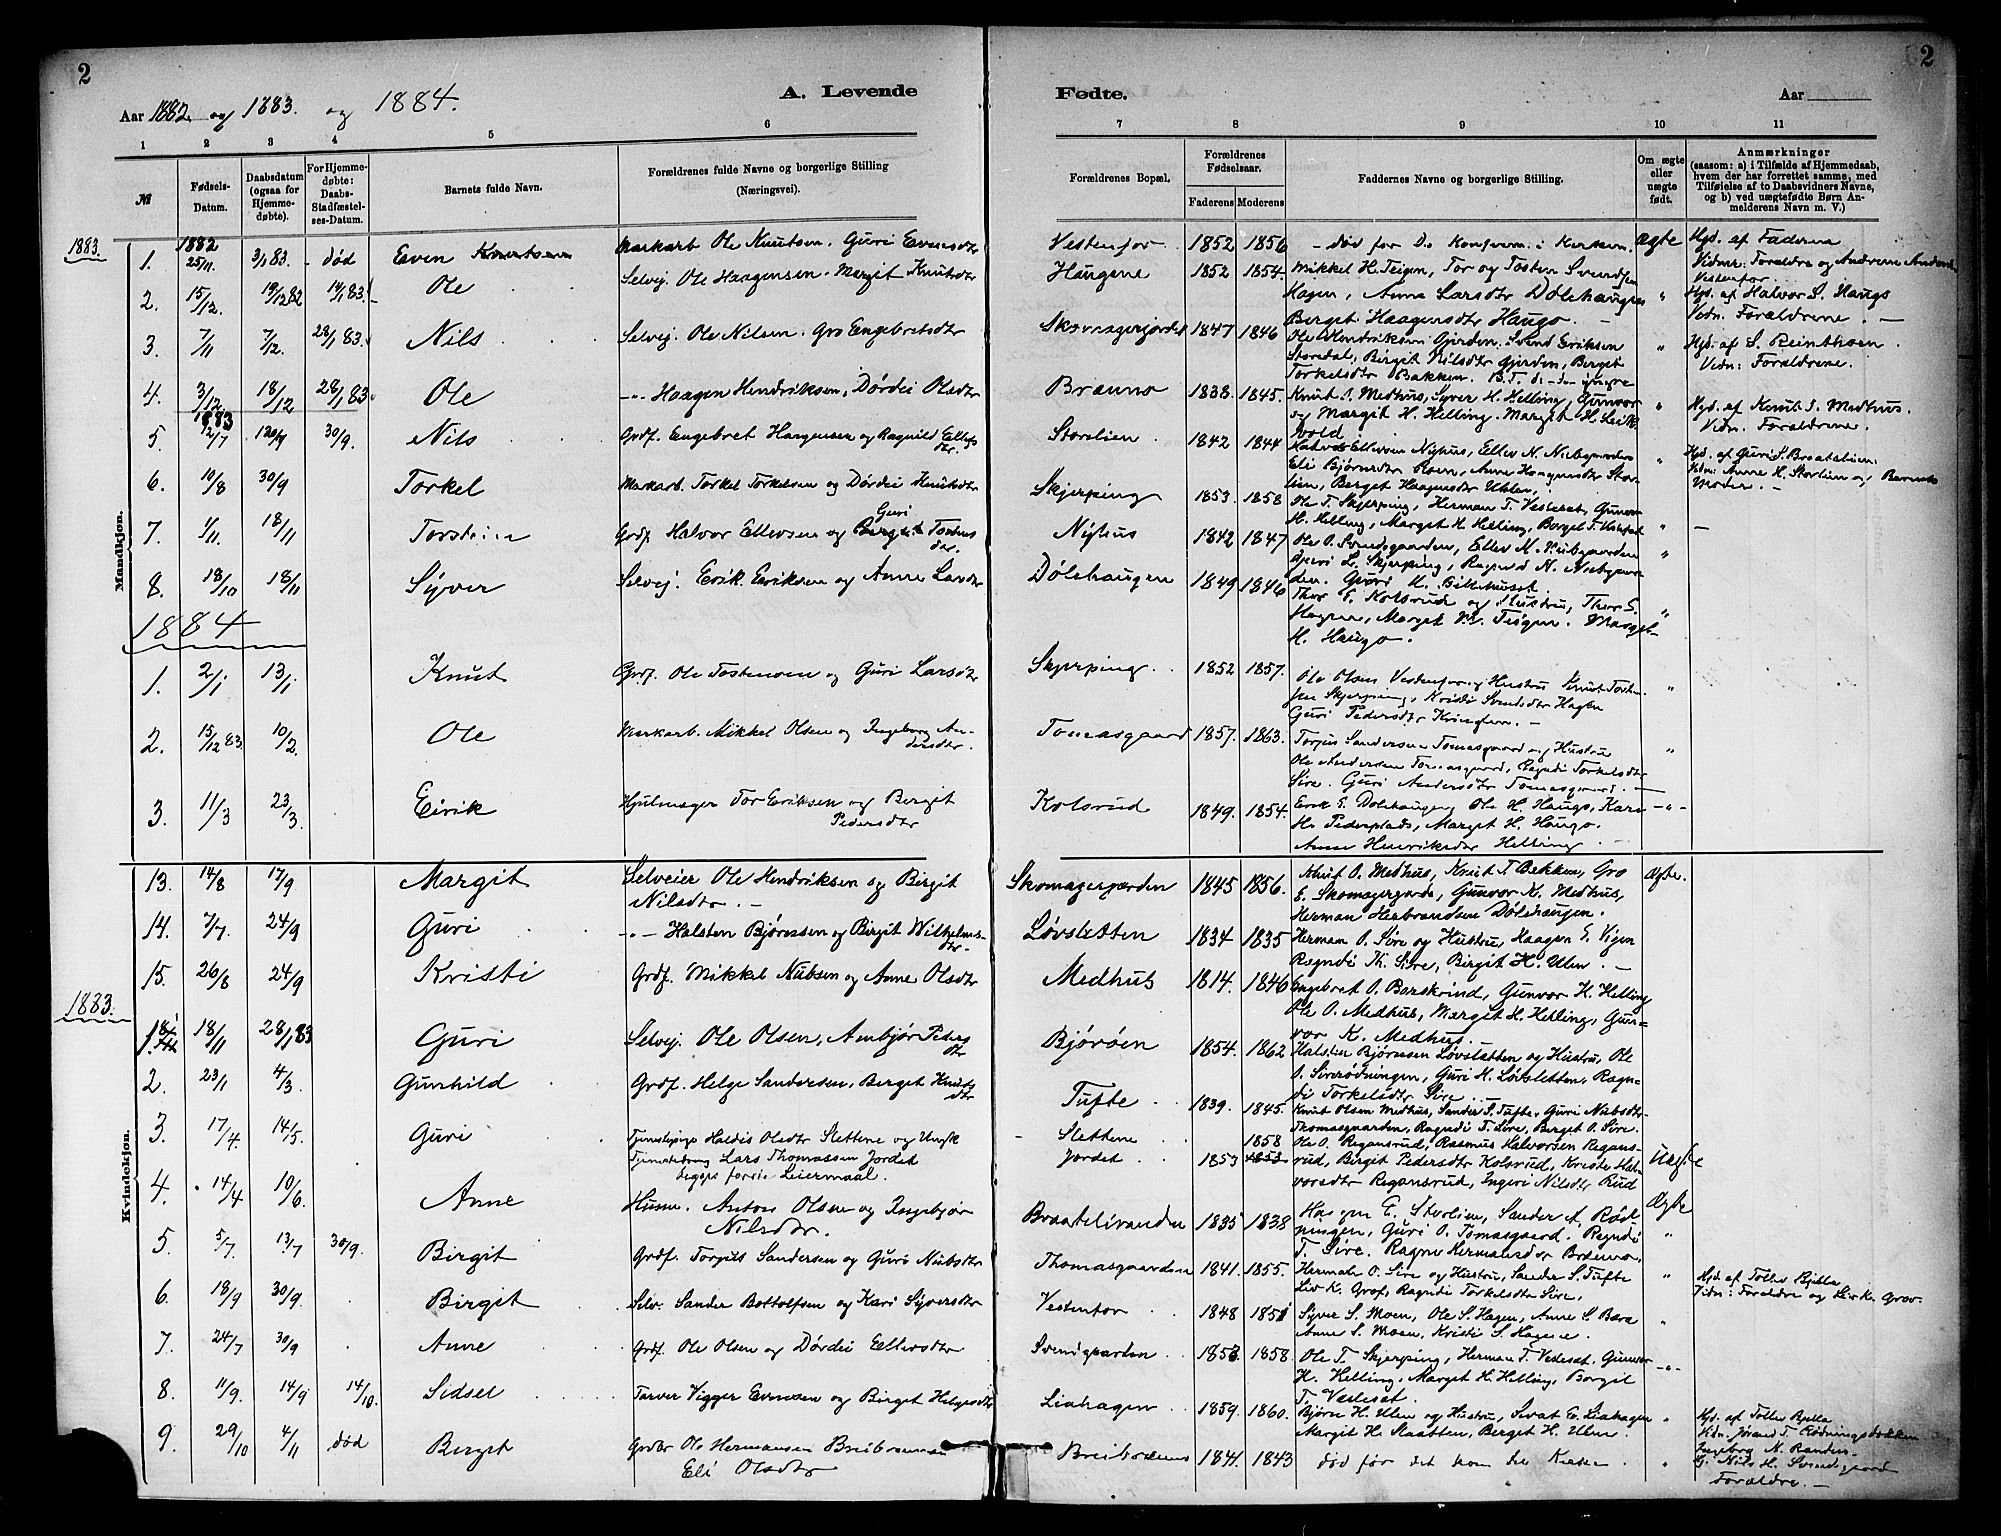 2
Aar 1882 og 1883. og 1884.
A. Levende
1 2 3 4 5 6
№
Fødsels-Datum.
Daabsdatum (ogsaa for Hjemmedøbte).
For Hjemmedøbte: Daabs Stadfæstelses-Datum.
Barnets fulde Navn.
Forældrenes fulde Navne og borgerlige Stilling (Næringsvei).
Mandkjøn.
1883.
1. 1882 25/11. 3/1 83. død Even Knutsen Markarb Ole Knutsen. Guri Evensdtr
2. 15/12. 19/12 82 14/1 83. Ole Selvej. Ole Haagensen. Margit Knutsdtr
3. 7/11 7/12. 28/1 83. Nils Selvej. Ole Nilsen. Gro Engebretsdtr
4. 3/12. 18/12 28/1 83. Ole -"- Haagen Hendriksen, Dørdei Olsdtr
1883
5. 12/7 20/7 30/9. Nils Grdf. Engebret Haagensen og Ragnild Ellefsdtr.
6. 10/8 30/9 Torkel Markarb. Torkel Torkelsen og Dørdei Knutsdtr
7. 1/11. 18/11 Torstein Grdf. Halvor Ellevsen og Guri Birgit Tostensdtr.
8. 18/10 18/11 Syver Selvej. Erik Eriksen og Anne Larsdtr
1884
1. 2/1 13/1 Knut Grdf. Ole Tostensen og Guri Larsdtr
2. 15/12 83. 10/2. Ole Markarb. Mikkel Olsen og Ingeborg Andersdtr.
3. 11/3 23/3. Eirik Hjulmager Tor Eriksen og Berget Pedersdtr
Kvindekjøn.
13. 14/8 17/9. Margit Selveier Ole Hendriksen og Birgit Nilsdtr. —
14. 7/7. 24/9 Guri -"- Halsten Bjørnsen og Birgit Wilhelmsdtr.
15. 26/8 24/9 Kristi Grdf. Mikkel Nubsen og Anne Olsdtr
1883.
1. 18/11 28/1 83 Guri Selvej. Ole Olsen, Ambjør Pedersdtr
2. 23/1 4/3. Gunhild Grdf. Helge Sandersen, Berget Knutsdtr
3. 17/4 14/5. Guri Tjenestepige Haldis Olsdtr Slettene og Ungk Tjenestedreng Lars Thomassen Jordet begges første Leiermaal.
4. 14/4 10/6. Anne Husm. Anton Olsen og Ingebjør Nilsdtr.
5. 5/7. 13/7 30/9. Birgit Grdf. Torgils Sandersen og Guri Nubsdtr
6. 18/9 30/9. Birgit Selv. Sander Bottolfsen og Kari Syversdtr
7. 24/7 30/9 Anne Grdf. Ole Olsen og Dørdei Ellevsdtr
8. 11/9. 14/9 14/10. Sidsel Farver Vigger Evensen og Birgit Helgesdtr
9. 29/10 4/11 død Berget Grdbr Ole Hermansen Breibrænna Eli Olsdtr
Fødte.
Aar
2
7 8 9 10 11
Forældrenes Bopæl.
Forældrenes Fødselsaar.
Faderens Moderens
Faddernes Navne og borgerlige Stilling.
Om ægte eller uægte født.
Anmærkninger
(saasom: a) i Tilfælde af Hjemmedaab, hvem der har forrettet samme, med Tilføielse af to Daabsvidners Navne, og b) ved uægtefødte Børn Anmelderens Navn m. V.)
Vestenfor 1852 1856 - død før D. Konferm. i Kirken. ægte Hjd. af Faderen Vidne: Foraldre og Andrene Vestenfor.
Haugene 1852 1854. Mikkel H. Teigen, Tor og Tosten Svendsen Hagen, Anne Larsdtr Dølehaugen Berget Haagensdtr Haugo. — " Hjd. af Halvor S. Haugs Vidn. Foraldrene. —
Skomagerjordet 1847 1846 Ole Hendriksen Gjerden. Svend Eriksen Stordal, Birgit Nilsdtr Gjerden, Berget Torkelsdtr Bakken. " Hjd. af S. Reinthoen. Vidn: Foraldrene.
Brænno 1838. 1845. Knut O. Medhus, Syver H. Helling, Gunvor og Margit H. Helling. Margit H. " Hjd. af Knut S. Medhus. Vidn. Foraldrene.
Storslien. 1842 1844 Halvor Ellevsen Nyhus, Ellev N. Nubgaarden Eli Bjørnsdtr Roen, Anne Haagensdtr Storlien, Berget Haagensdtr Uhlen, " Hjd. af Guri S. Braatalien. Vidn: Anne H. Storlien og Barnets Moder. —
Skjerping 1853. 1858 Ole T. Skjerping, Herman T. Vesteset, Gunvor H. Helling, Marget H. Helling, Borgel T. Vesteset " —
Nyhus 1842 1847 Ole O. Svendsgaarden, Ellev N. Nubgaarden Guri L. Skjerping, Ragnild N. Nubgaarden. Guri "
Dølehaugen 1849 1846 Thor E. Kolsrud og Hustru, Thor S. Hagene, Marget M. Teigen. Marget H. Haugo. "
Skjerping. 1852 1857. Ole Olsen Vestenfor og Hustru Knut Torstensen Skjerping, Kristi Svendsdtr Hagen Guri Pedersdtr — "
Tomasgaard 1857. 1863. Torjus Sandersen Tomasgaard og Hustru Ole Andersen Tomasgaard, Ragndi Torkelsdtr Sire. Guri Andersdtr Tomasgaard. — "
Kolsrud 1849. 1854. Erik E. Dølehaugen, Ole H. Haugo, Kari H. Pedersplads, Marget H. Haugo. Anne Henriksdtr Helling. — -"-
Skomagerjorden 1845 1856. Knut O. Medhus, Knut T. Bekken, Gro E. Skomagerjorde, Gunvor K. Medhus, Herman Herbrandsen Dølehaugen. Ægte.
Løvsletten 1834 1835 Herman O. Sire og Hustru, Haagen E. Vigen Ragndi Th. Sire, Birgit H. Ulen. —
Medhus 1814. 1846 Engebret O. Barskrind, Gunvor H. Helling Ole O. Medhus, Margit H. Helling, Gunvor K. Medhus.
Bjørøen 1854. 1862 Halsten Bjørnsen Løvsletten og Hustru, Ole O. Sirerødningen, Guri H. Løvsletten, Ragndi Torkelsdtr Sire.
Tufte. 1839. 1845. Knut Olsen Medhus, Sander S. Tufte, Guri Nubsdtr Thomasgaarden, Ragndi T. Sire, Berget O. Sire.
Slettene 1858
Jordet. 1853 1853 Ole O. Regansrud, Rasmus Halvorsen Regansrud, Birgit Pedersdtr Kolsrud, Kristi Halvorsdtr Regansrud, Ingeri Nilsdtr Rud Uægte
Braatelivanden 1835 1838 Haagen E. Storlien, Sander A. Rødningen, Guri O. Tomasgaard. Ragndi T. Sire. Ragne Hermansdtr Brænno. Ægte
Thomasgaarden 1841. 1855. Herman O. Sire og Hustru, Sander S. Tufte Liv K. Grøf, Ragndi Torkelsdtr Sire, " Hjd. af Tollev Bjella Vidn: Foraldre og Liv K. Grøv.
Vestenfor 1848 1851 Syver S. Moen, Ole S. Hagen, Anne S. Bæra Anne S. Moen, Kristi S. Hagene. "
Svensgaarden. 1853. 1858. Ole T. Skjerping, Herman T. Vesteset. Gunvor H. Helling, Marget H. Helling, Borgil T. Vesteset. -"-
Liahagen. 1859. 1860. Bjørn H. Ulen og Hustru, Sevat E. Liahagen Margit H. Slaatten, Berget H. Ulen. " Hjd. af Tollev Bjella Vidn. Jørand T. Rødningsbakken Ingeborg N.
Breibrænno 1841. 1843 død før det kom til Kirken. " Hj. Nils H. Svendsgaard Forældre. —